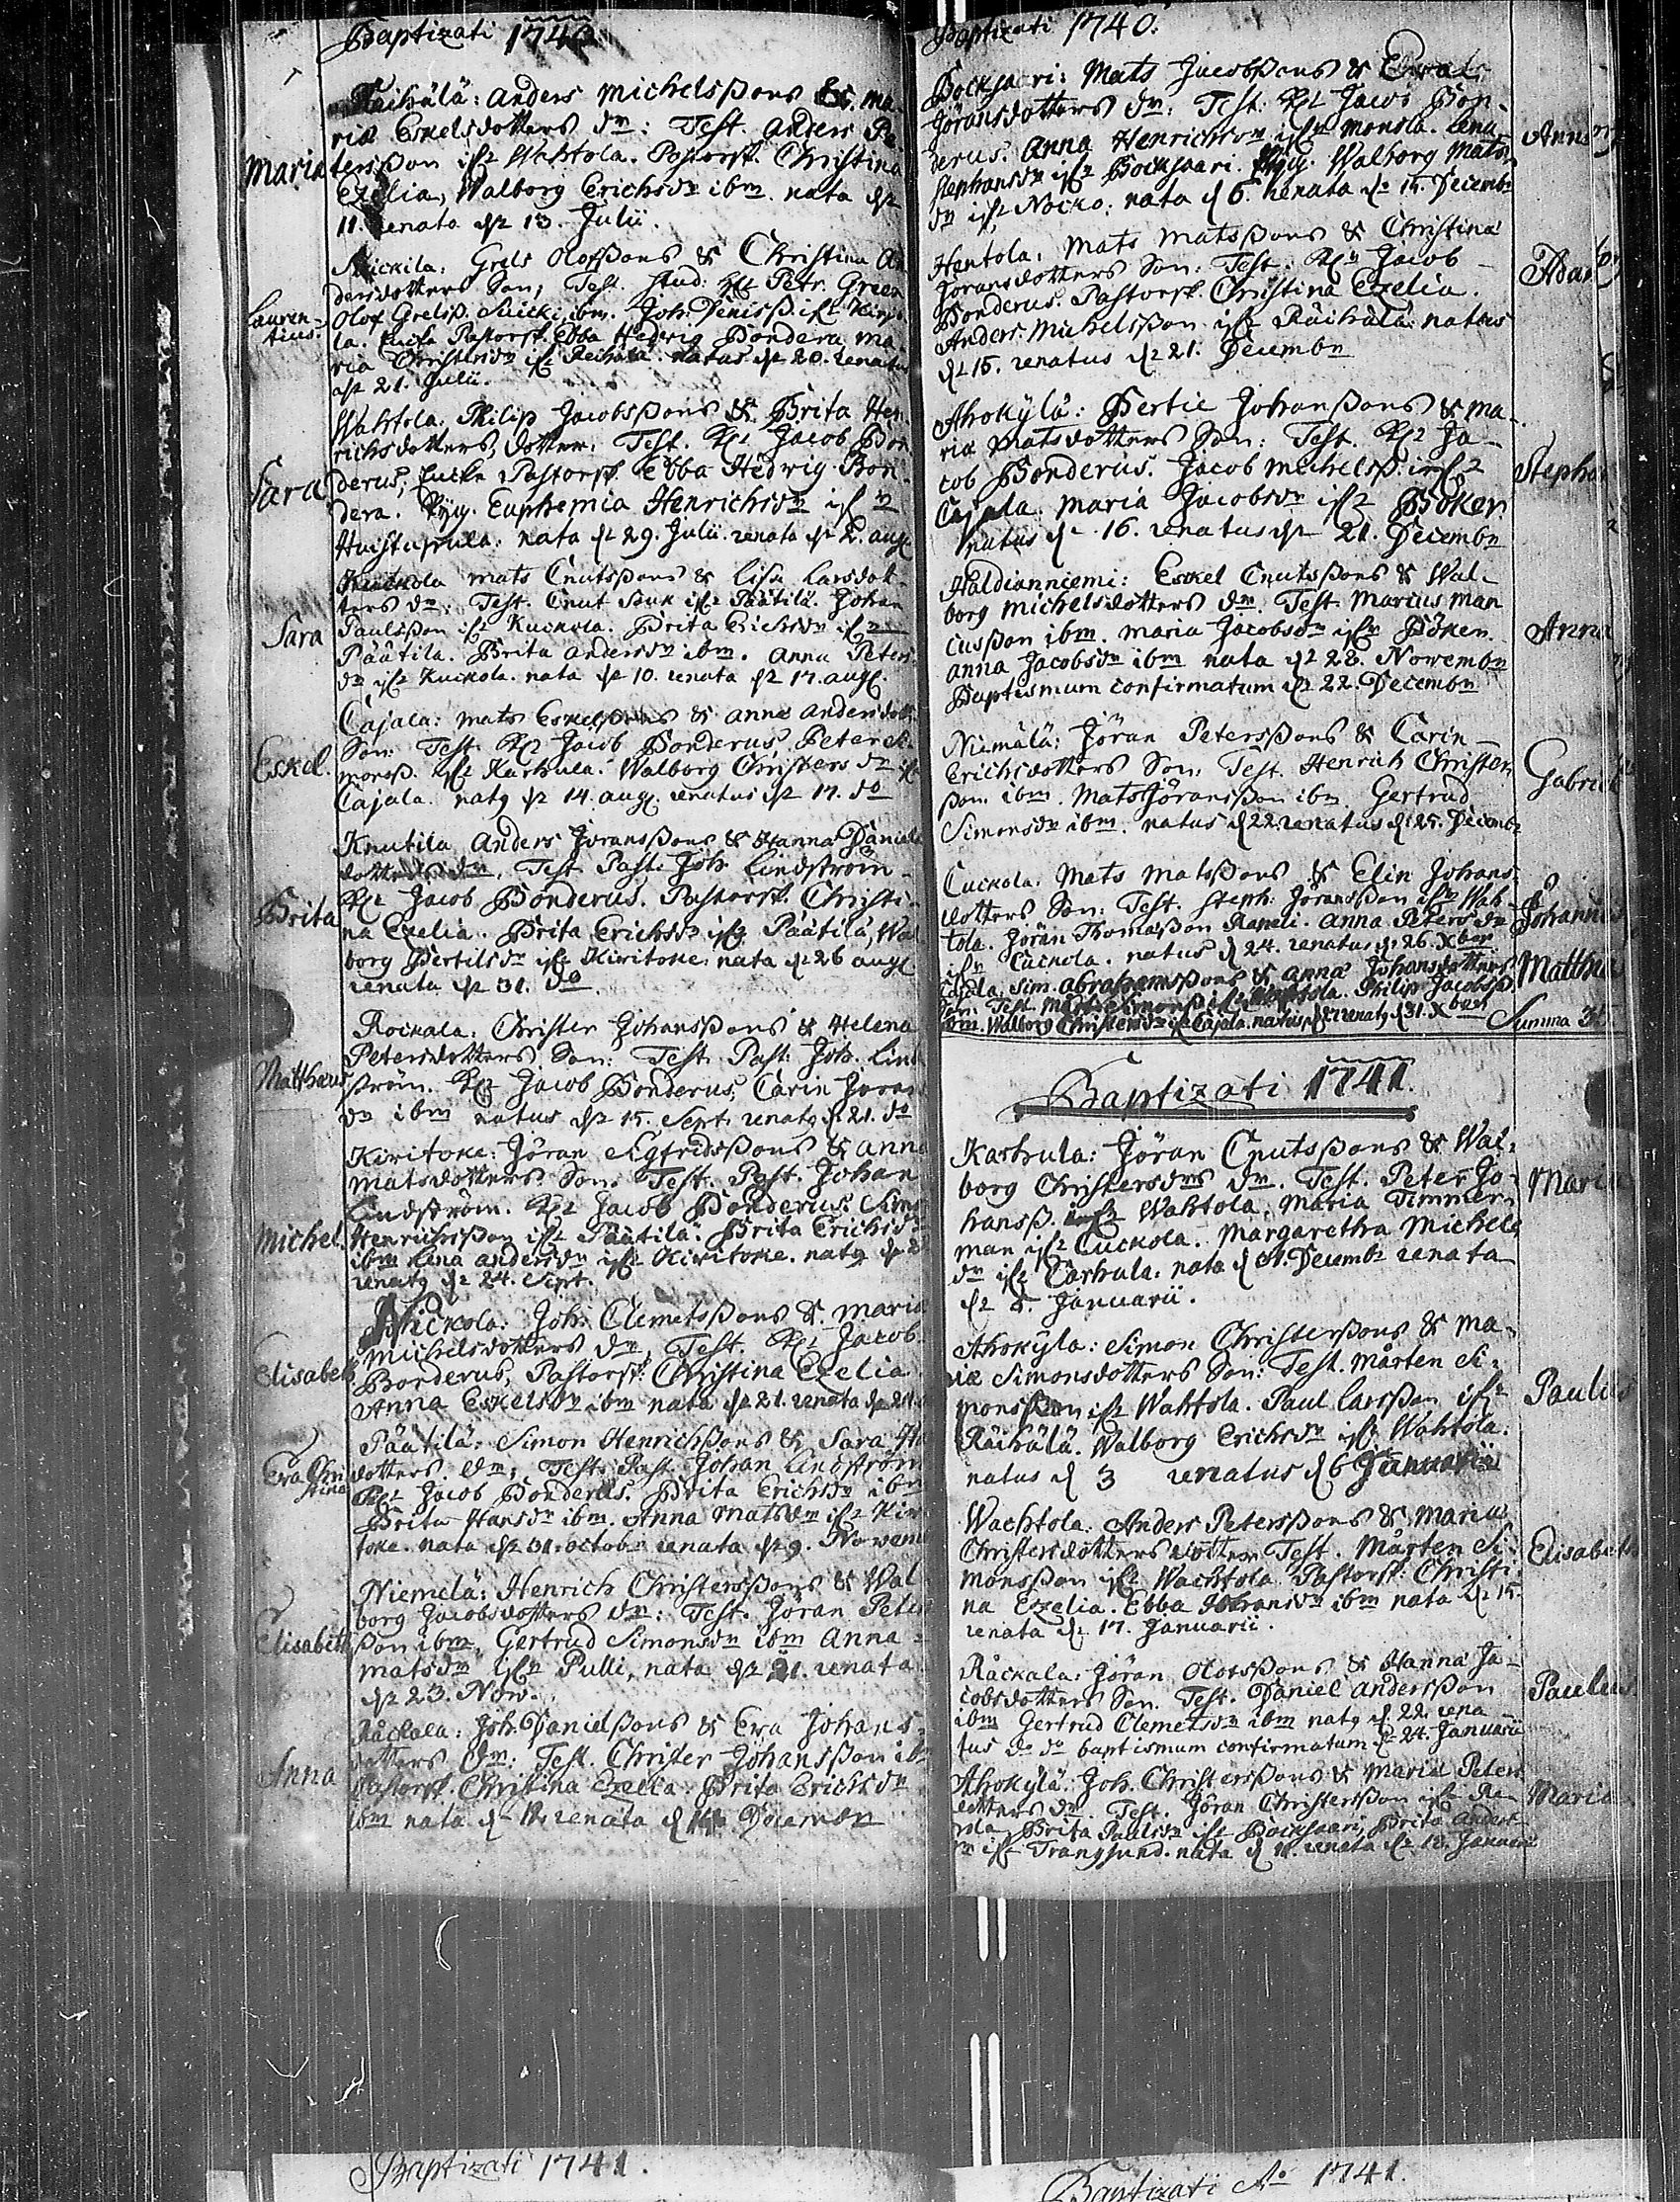 Baptizati 1740
Räihälä: Anders Michelssons & Ma-
ria Eskelsdotters dr: Test. Anders Pe-
Maria
tersson ifr Wahtola. Pastorsk. Christina
Ezelia, Walborg Erichsdr ibm. nata dr
11. renata dr 13. Julii.
Grels Olofssons & Christina An
dersdotters Son; Test. stud: Petr. Green
Lauren-
tius.
Olof Grelss. ibm. Joh. ifr
la. Encka Pastorsk. Ebba Hedwig Bondera, Ma
ria Christersdr ifr Reihälä. natus dr 20. renatus
dr 21. Julii.
Wahtola. Philip Jacobssons & Brita Hen
richsdotters, dotter. Test. Jacob Bon
Sara
derus; Encke Pastorsk. Ebba Hedwig Bon-
dera. Pyg. Euphemia Henrichsdr ifr
nata dr 29. Julii. renata dr 2. aug.
Kuckola Mats Cnutssons & Lisa Larsdot-
ters dr. Test. Cnut ifr Päätilä. Johan
Sara
Paulsson ifr Kuckola. Brita Erichsdr ifr
Päätila. Brita Andersdr ibm. Anna Peters
dr ifr Kuckola. nata dr 10. renata dr 17. aug.
Cajala: Mats Eskelssons & Anna Andersdott
Eskel.
Son: Test. Jacob Bonderus, Peter Si-
monss. ifr Karhula. Walborg Christersdr ifr
Cajala. natq dr 14. aug. renatus dr 17. do
Knutila Anders Jöranssons & Hanna Daniels
dotters dr. Test. Past. Joh. Lindström-
Brita
Jacob Bonderus. Pastorsk. Christi-
na Ezelia. Brita Erichsdr ifr Päätilä, Wal
borg Bertilsdr ifr Kiritoke. nata dr 26 aug.
renata dr 31. do
Rockala. Christer Johanssons & Helena
Petersdotters Son: Test. Past. Joh. Lind
Matthæus
ström. Jacob Bonderus, Carin Joran
dr ibm natus dr 15. Sept. renatq dr 21. do
Kiritoke: Jöran Sigfridssons & Anna
Matsdotters Son. Test. Past. Johan
Lindström. Jacob Bonderus. Simo
Michel.
Henrichsson ifr Päätilä. Brita Erichsdr
ibm Lena Andersdr ifr Kiritoke. natq dr
renatq dr 24. Sept.
Joh. Clemetssons & Maria
Michelsdotters dr, Test. Jacob
Elisabeth
Bonderus, Pastorsk. Christina Ezelia
Anna Eskelsdr ibm nata dr 21. renata dr
Päätilä: Simon Henrichssons & Sara
Eva Chri
stina
dotters dr; Test. Past. Johan Lindström
Jacob Bonderus. Brita Erichsdr ibm
Brita Hansdr ibm. Anna Matsdr ifr Kiri
toke. nata dr 31. octobr renata dr 9. Novem
Niemelä: Henrich Christerssons & Wal
borg Jacobsdotters dr: Test. Jöran Peter
Elisabeth
sson ibm. Gertrud Simonsdr ibm Anna
Matsdr ifr Pulli, nata dr 21. renata
dr 23. Nov.
Råckala: Joh. Danielssons & Eva Johans-
dotters dr: Test. Christer Johansson ibm
Anna
Pastorsk. Christina Ezelia. Brita Erichsdr
ibm nata dr renata d Decembr
Baptizati 1740.
Bocksaari: Mats Jacobssons & Eva
Jöransdotters dr: Test. Jacob Bon-
Anna
derus. Anna Henrichsdr ifr Monola. Lena
Stephansdr ifr Bocksaari. Pyg. Walborg Mats
dr ifr Nocko: nata d 6. renata dr 14. Decembr
Hentola. Mats Matssons & Christina
Jöransdotters Son: Test. Jacob
Adam
Bonderus. Pastorsk. Christina Ezelia.
Anders Michelsson ifr Räihälä: natus
dr 15. renatus dr 21. Decembr
Ahokylä: Bertil Johanssons & Ma-
ria Matsdotters Son: Test. Ja-
Stepha
cob Bonderus. Jacob Michelss: ifr
Cajala. Maria Jacobsdr ifr Böker
natus dr 16. renatus dr 21. Decembr
Haldianniemi: Eskel Cnutssons & Wal-
borg Michelsdotters dr. Test. Marcus Mar
Anna
cusson ibm. Maria Jacobsdr ifr Böken.
Anna Jacobsdr ibm nata dr 28. Novembr
Baptismum confirmatum dr 22. Decembr
Niemälä: Jöran Peterssons & Carin
Erichsdotters Son: Test. Henrich Christer
Gabriel
sson ibm. Mats Jöransson ibm. Gertrud
Simonsdr ibm. natus d 22 renatus d. 25. Decembr
Cuckola: Mats Matssons & Elin Johans-
dotters Son: Test. Steph: Jöransson ifr Wah-
Johannes
tola. Jöran Thomasson Rameli. Anna Petersdr
ifr Cuckola. natus d 24. renatus dr 26. Xber
Matthias
Cajala. Sim. Abrahamssons & Anna Johansdotters
Son. Test. Mårt. Simonss ifr Wahtola. Philip Jacobss
ibm. Walborg Christersdr ifr Cajala. natus renatq d 31. Xber
Summa 35
Baptizati 1741.
Karhula: Jöran Cnutssons & Wal-
borg Christersdrs dr. Test. Peter Jo-
Maria
hanss. ifr Wahtola, Maria Timmer-
man ifr Cuckola. Margaretha Michels
dr ifr Carhula. nata d 31. Decembr renata
dr 5. Januarii.
Ahokyla: Simon Christerssons & Ma-
riæ Simonsdotters Son: Test. Mårten Si-
Paulus
monsson ifr Wahtola. Paul Larsson ifr
Räihälä. Walborg Erichsdr ifr Wahtola:
natus d 3 renatus d 6 Januarii
Wachtola. Anders Peterssons & Maria
Christersdotters dotter Test. Mårten Si-
Elisabeth
monsson ifr Wachtola Pastorsk: Christi-
na Ezelia. Ebba Jöransdr ibm nata dr 15.
renata dr 17. Januarii.
Råckala: Jöran Olofssons & Hanna Ja-
cobsdotters Son. Test. Daniel Andersson
Paulus
ibm Gertrud Clemetsdr ibm natq d 22. rena-
tus do do baptismum confirmatum dr 24. Januarii
Ahokylä: Joh. Christerssons & Maria Peters
dotters dr. Test. Jöran Christersson ifr
Maria
Brita Paulsdr ifr Bocksaari, Brita Anders-
dr ifr Trangsund. nata d 11. renata dr 18. Januarii
Baptizati 1741.
Baptizati Ao 1741.